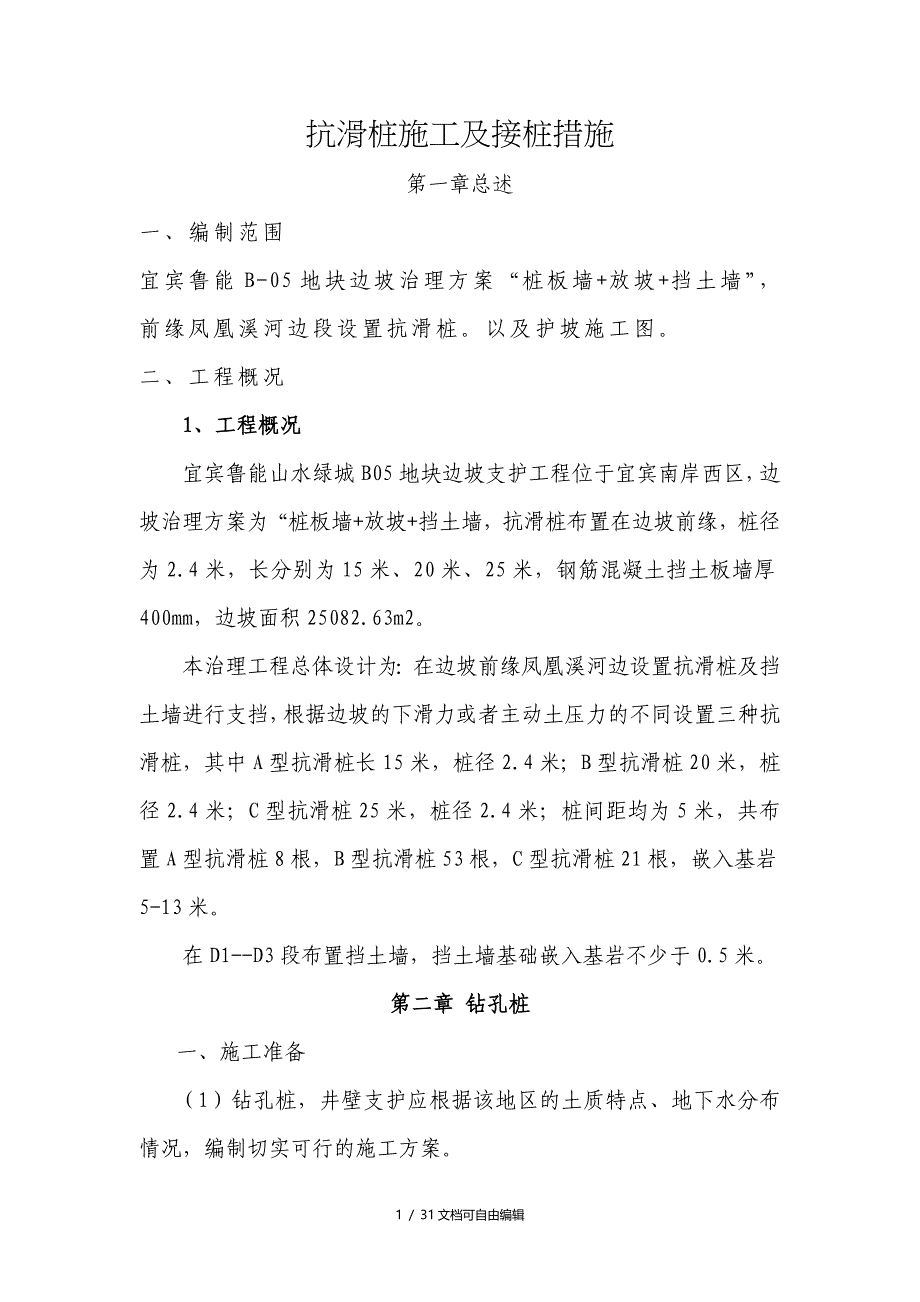 抗滑桩施工及接桩措施
第一章总述
一、编制范围
宜宾鲁能B-05地块边坡治理方案“桩板墙+放坡+挡土墙”,
前缘凤凰溪河边段设置抗滑桩。以及护坡施工图。
二、工程概况
1、工程概况
宜宾鲁能山水绿城B05地块边坡支护工程位于宜宾南岸西区,边
坡治理方案为“桩板墙+放坡+挡土墙,抗滑桩布置在边坡前缘,桩径
为2.4米,长分别为15米、20米、25米,钢筋混凝土挡土板墙厚
400mm,边坡面积25082.63m2。
本治理工程总体设计为:在边坡前缘凤凰溪河边设置抗滑桩及挡
土墙进行支挡,根据边坡的下滑力或者主动土压力的不同设置三种抗
滑桩,其中A型抗滑桩长15米,桩径2.4米;B型抗滑桩20米,桩
径2.4米;C型抗滑桩25米,桩径2.4米;桩间距均为5米,共布
置A型抗滑桩8根,B型抗滑桩53根,C型抗滑桩21根,嵌入基岩
5-13米。
在D1--D3段布置挡土墙,挡土墙基础嵌入基岩不少于0.5米。
第二章 钻孔桩
一、施工准备
(1)钻孔桩,井壁支护应根据该地区的土质特点、地下水分布
情况,编制切实可行的施工方案。
1 / 31文档可自由编辑